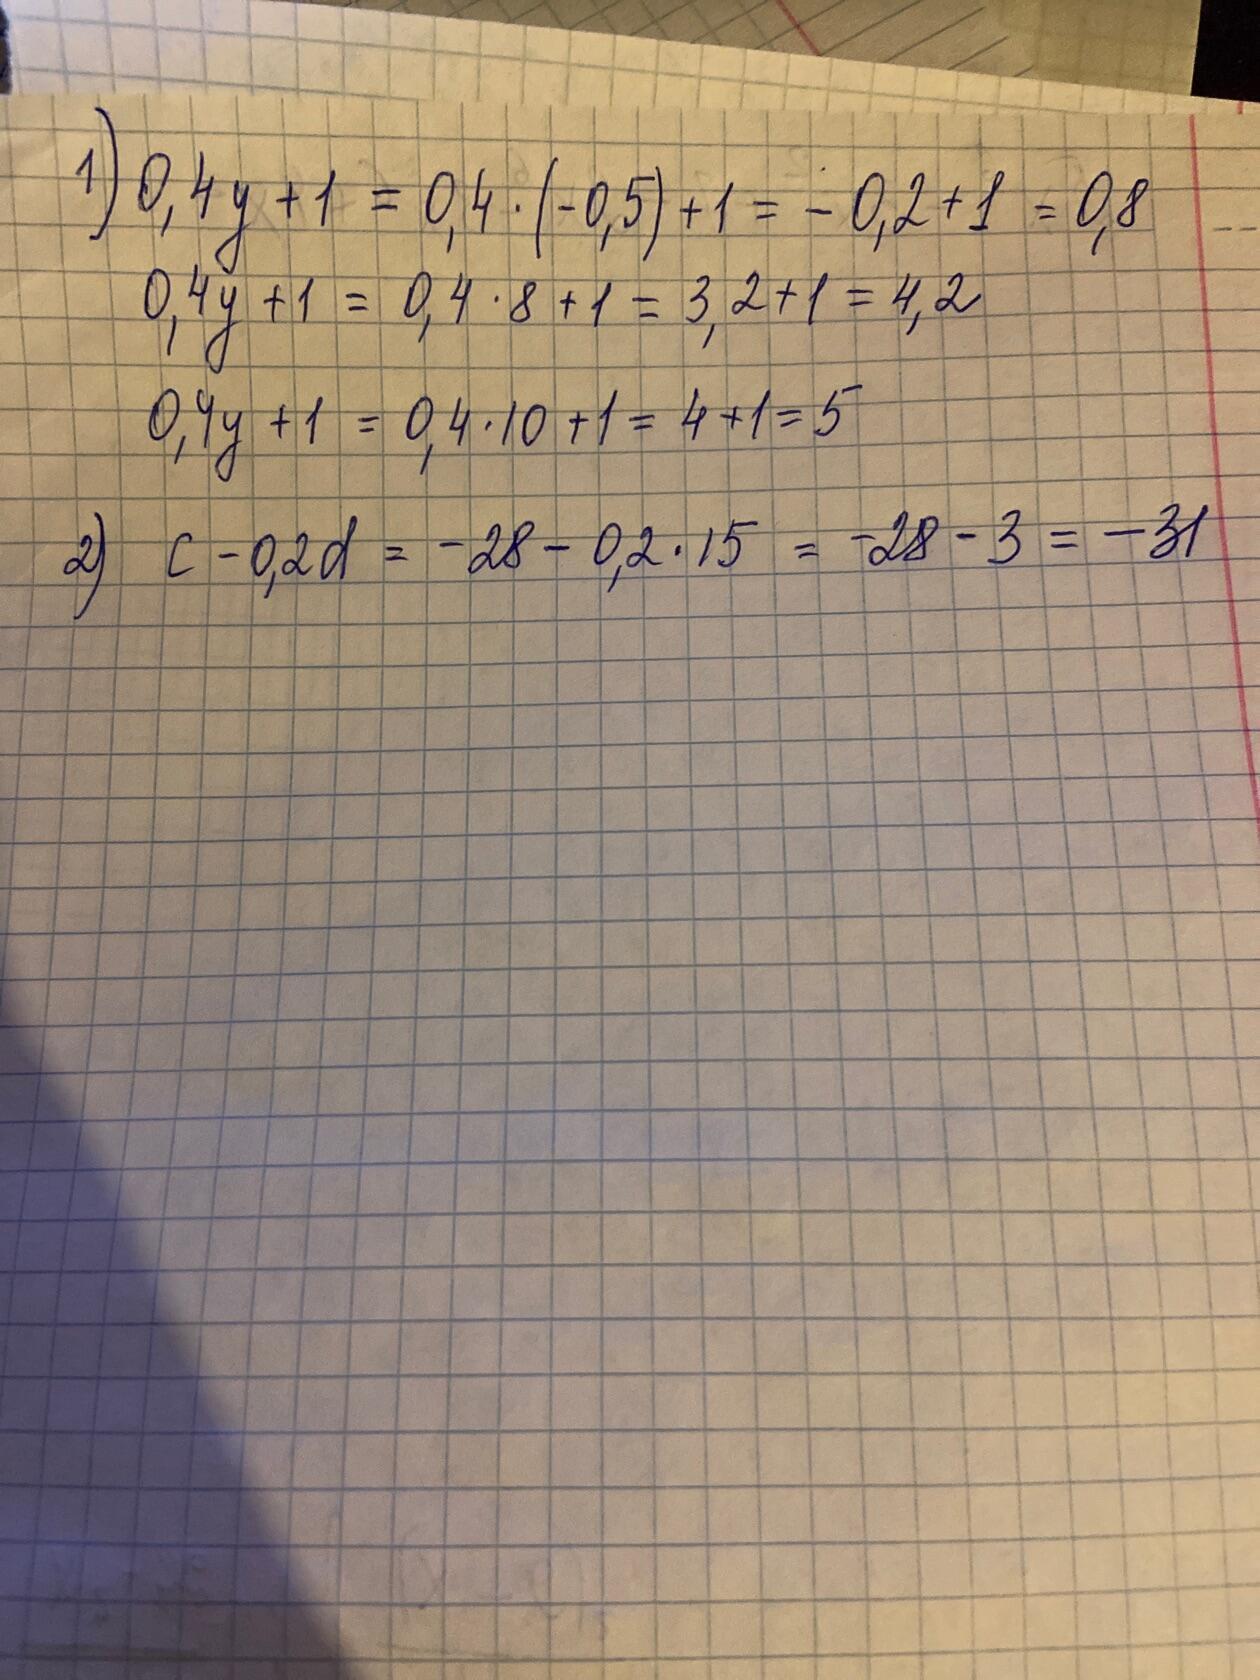 1) 0,4y + 1 = 0,4 · (-0,5) + 1 = - 0,2 + 1 = 0,8
0,4y + 1 = 0,4 · 8 + 1 = 3,2 + 1 = 4,2
0,4y + 1 = 0,4 · 10 + 1 = 4 + 1 = 5
2) c - 0,2d = -28 - 0,2 · 15 = -28 - 3 = -31